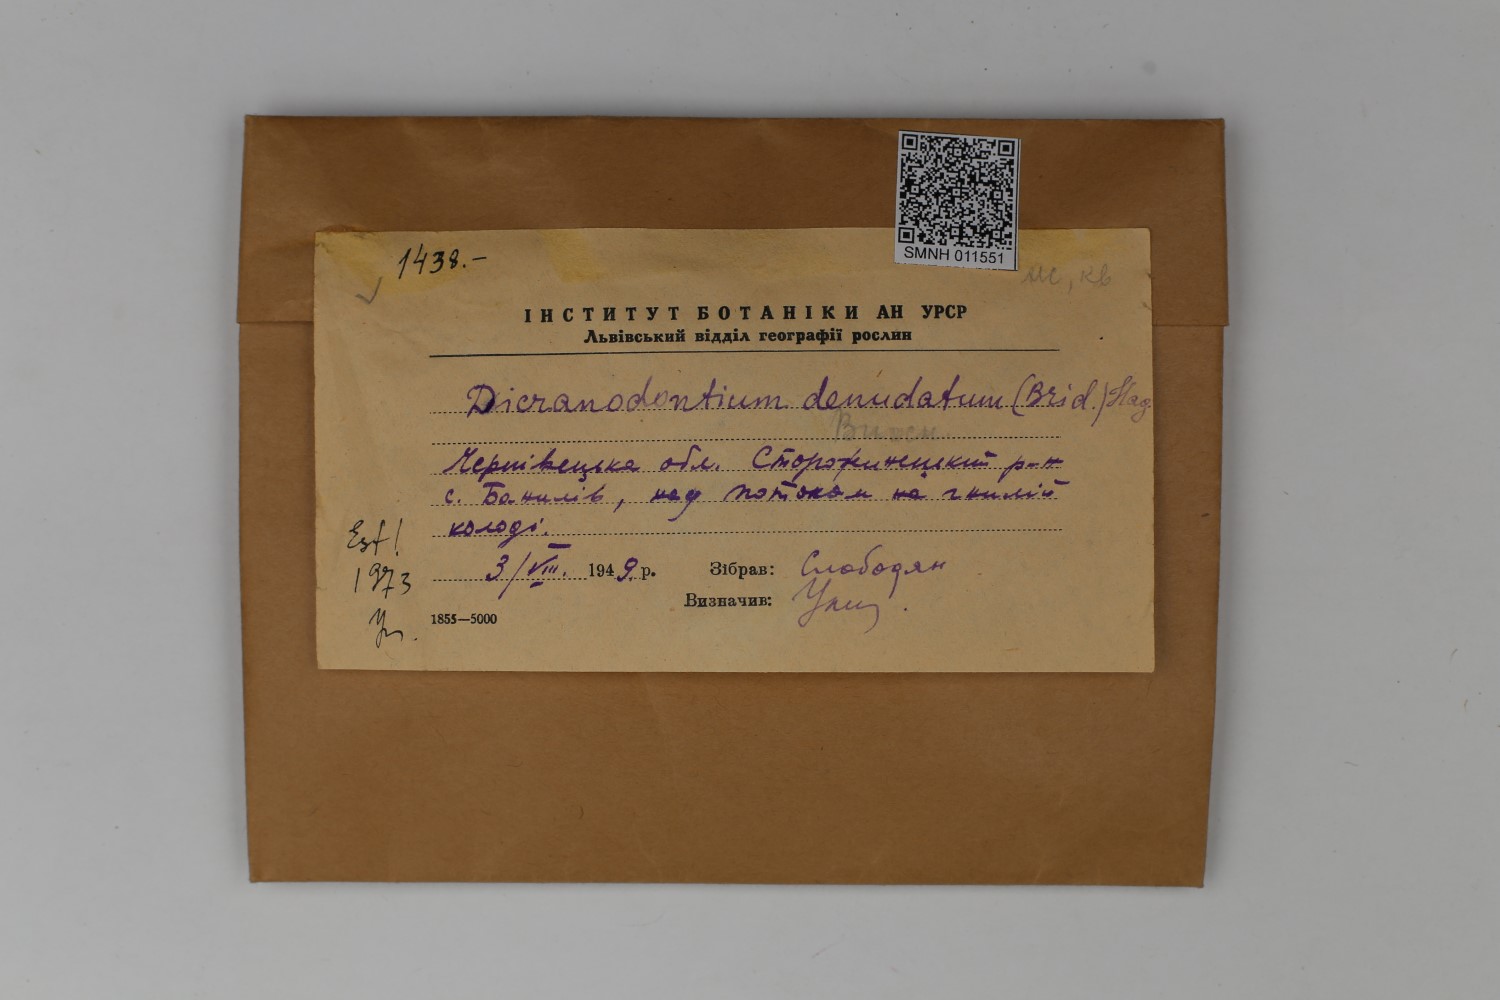 SMNH 011551
1438.-
ІНСТИТУТ БОТАНІКИ АН УРСР
Львівський відділ географії рослин
Dicranodontium denudatum (Brid.) Hag.
Чернівецька обл. Сторожинецький р-н
с. Банилів, над потоком на гнилій
колоді.
3/VIII. 1949 р. Зібрав: Слободян
Визначив:
1855—5000
1973